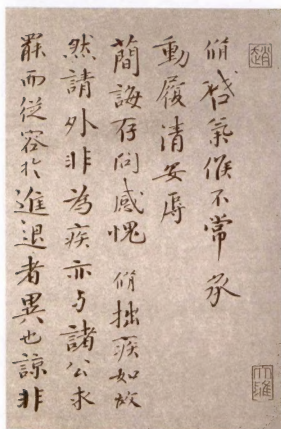 脩啓氣候不常承
動履清安辱
簡誨存問感愧脩拙疾如故
然請外非為疾亦与諸公求
罷而從容於進退者異也諒非
趙
大雅